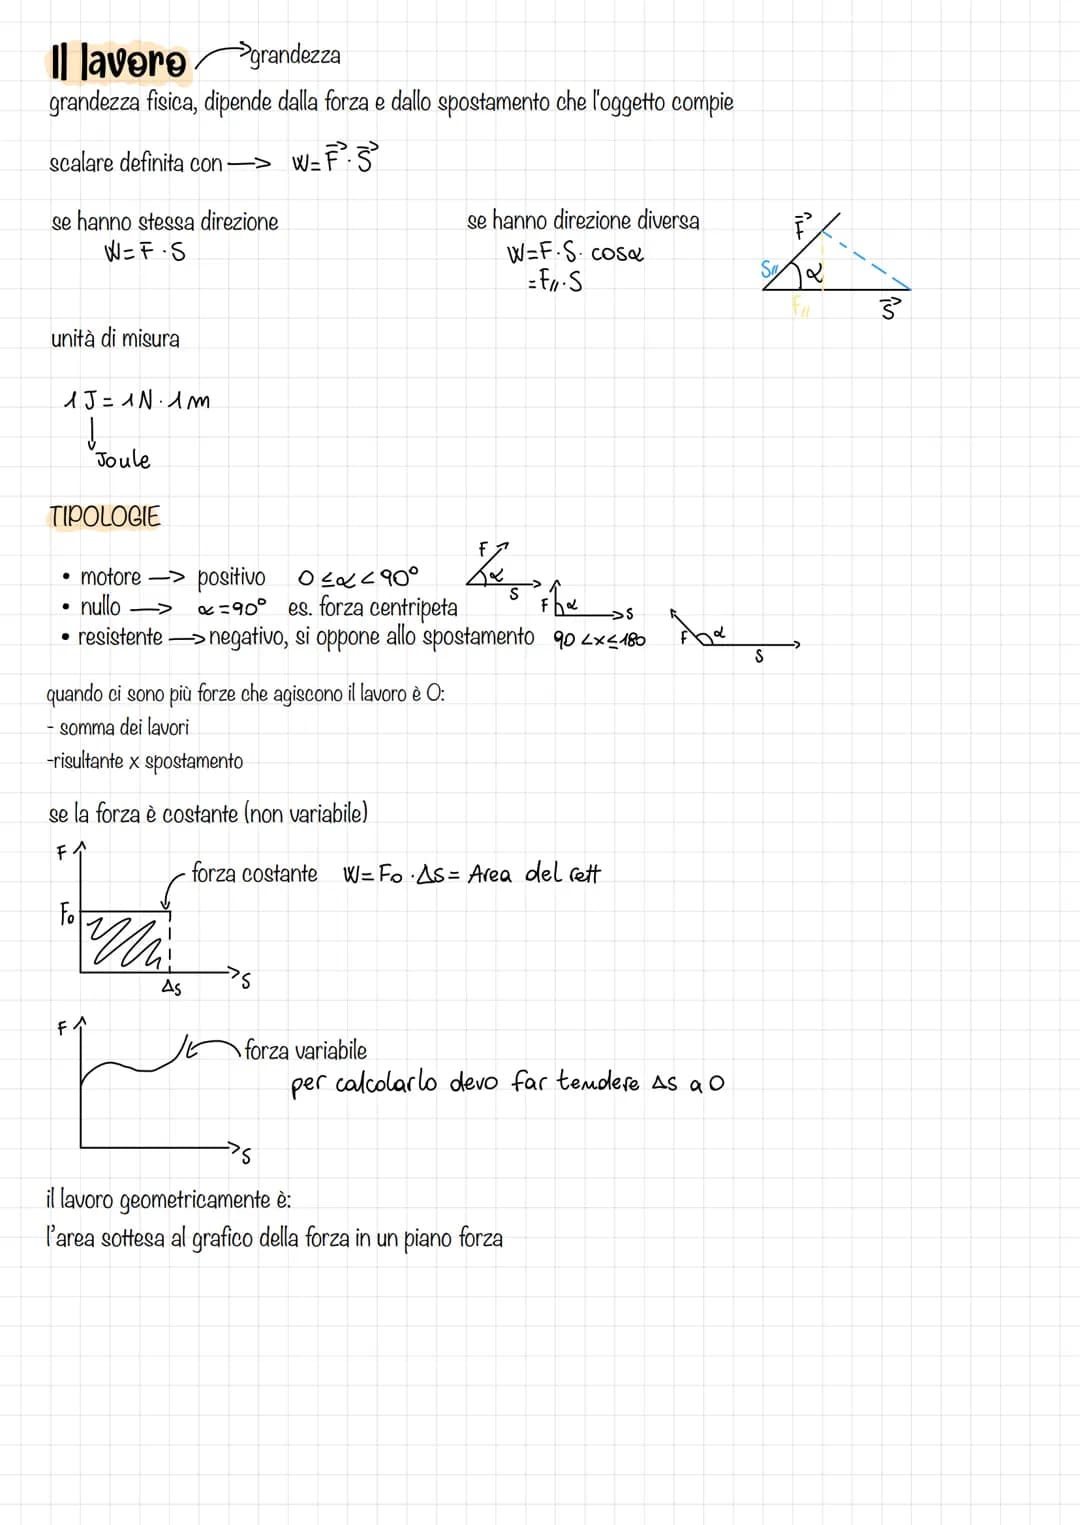 Il lavoro → grandezza
grandezza fisica, dipende dalla forza e dallo spostamento che l'oggetto compie
scalare definita con → W=F⃗·S⃗
se hanno stessa direzione
W=F·S
se hanno direzione diversa
W=F·S·cosα
=F//·S
F⃗
S//
α
F//
S⃗
unità di misura
1J=1N·1m
Joule
TIPOLOGIE
• motore → positivo 0≤α<90°
F
α
S
• nullo → α=90° es. forza centripeta
F
α
S
• resistente → negativo, si oppone allo spostamento 90<x≤180
F
α
S
quando ci sono più forze che agiscono il lavoro è O:
- somma dei lavori
-risultante x spostamento
se la forza è costante (non variabile)
F
forza costante W=F₀·Δs= Area del rett
F₀
S
Δs
F
forza variabile
per calcolarlo devo far tendere Δs a 0
S
il lavoro geometricamente è:
l'area sottesa al grafico della forza in un piano forza